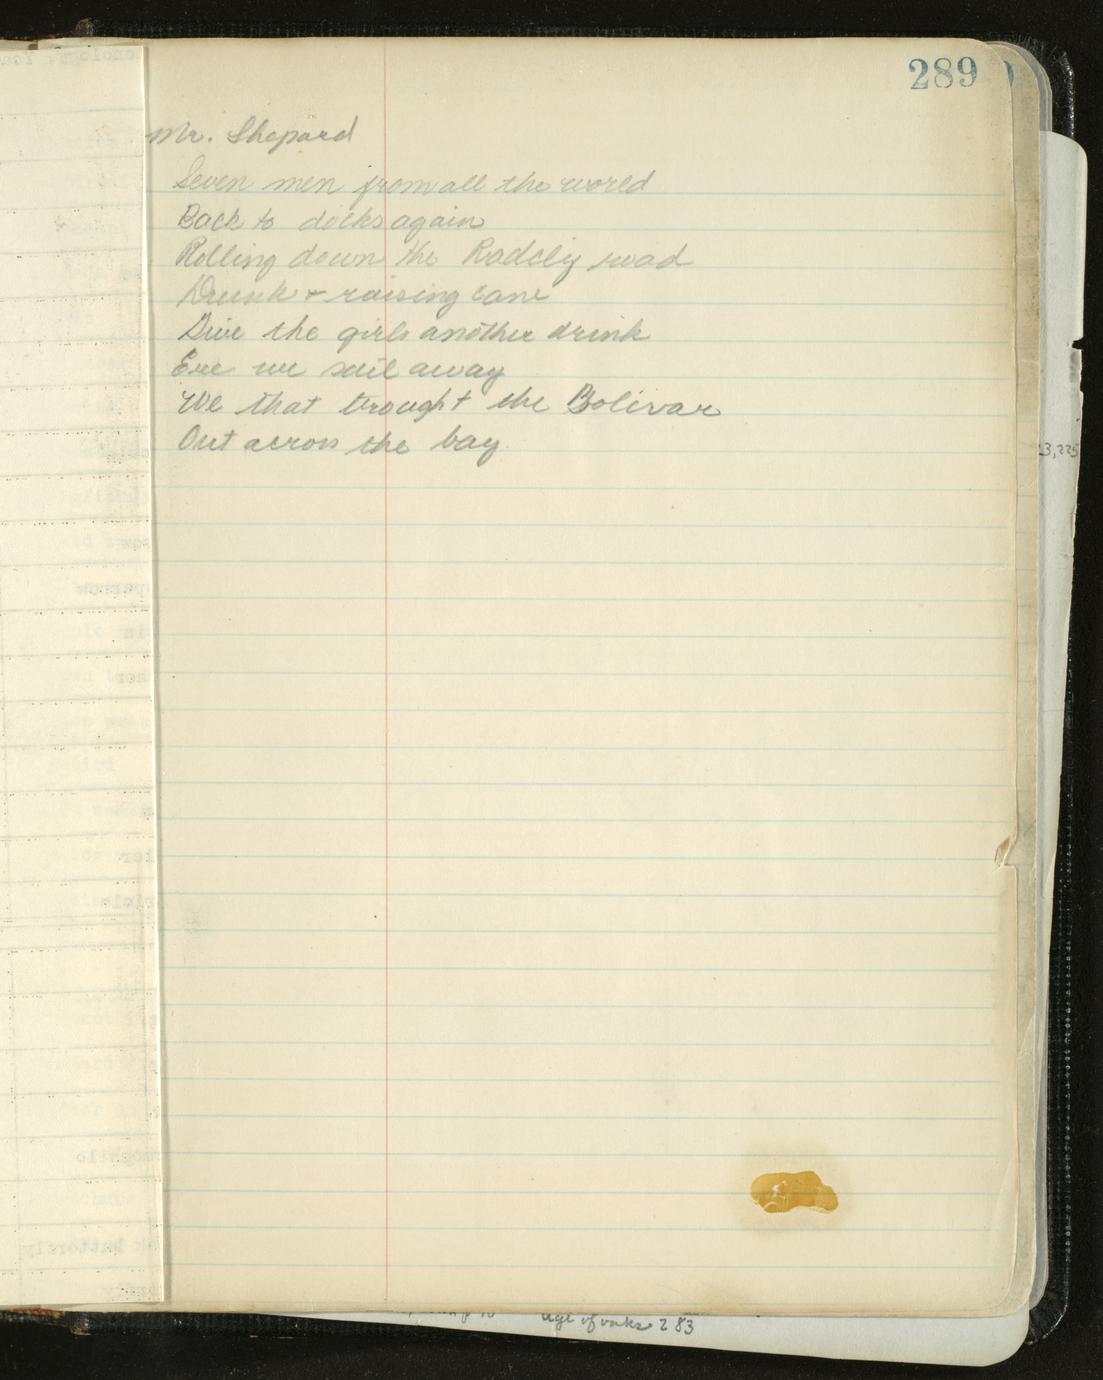 289
Mr. Shepard
Seven men from all the world
Back to docks again
Rolling down the Radcliy road
Drunk + raising Cane
Give the girls another drink
Ere we sail away
We that trought the Bolivar
Out across the bay
23,225
age of oaks 283